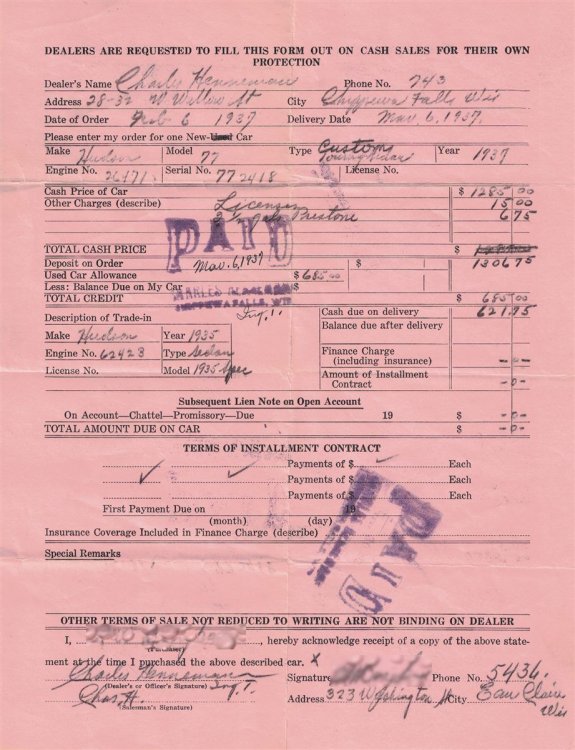 DEALERS ARE REQUESTED TO FILL THIS FORM OUT ON CASH SALES FOR THEIR OWN
PROTECTION
Dealer's Name Charles Henneman Phone No. 743
Address 28-32 W Willow St City Chippewa Falls Wis
Date of Order Feb 6 1937 Delivery Date Mar. 6, 1937.
Please enter my order for one New-Used Car
Make Hudson Model 77 Type Customs Touring Sedan Year 1937
Engine No. 26171 Serial No. 772418 License No.
Cash Price of Car $ 1285.00
Other Charges (describe) License 15 00
Prestone 6 75
PAID
TOTAL CASH PRICE $
Deposit on Order Mar. 6, 1937 $ 1306 75
Used Car Allowance $ 685 00
Less: Balance Due on My Car $
CHIPPEWA FALLS, WIS.
TOTAL CREDIT $ 685 00
Description of Trade-in Cash due on delivery 621.75
Make Hudson Year 1935 Balance due after delivery
Engine No. 62423 Type Sedan Finance Charge
(including insurance) -0-
License No. Model 1935 Spec Amount of Installment
Contract -0-
Subsequent Lien Note on Open Account
On Account—Chattel—Promissory—Due 19 $ -0-
TOTAL AMOUNT DUE ON CAR $ -0-
TERMS OF INSTALLMENT CONTRACT
Payments of $ Each
Payments of $ Each
Payments of $ Each
First Payment Due on 19
(month) (day)
PAID
Insurance Coverage Included in Finance Charge (describe)
Special Remarks
OTHER TERMS OF SALE NOT REDUCED TO WRITING ARE NOT BINDING ON DEALER
I, , hereby acknowledge receipt of a copy of the above state-
(Purchaser)
ment at the time I purchased the above described car. X
Charles Henneman Signature Phone No. 5436
(Dealer's or Officer's Signature)
Chas. H. Address 323 Washington St City Eau Claire
Wis
(Salesman's Signature)